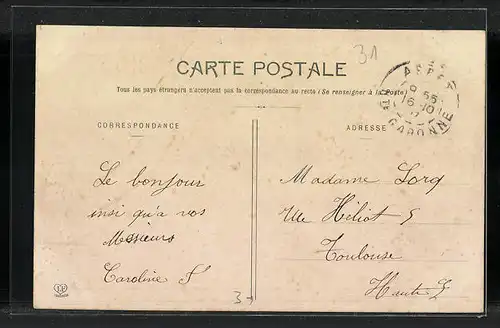 31
CARTE POSTALE
Tous les pays étrangers n'acceptent pas la correspondance au recto (Se renseigner à la Poste)
CORRESPONDANCE
ADRESSE
ASPET
9 55
16 10
GARONNE
Le bonjour
insi qu'a vos
Messieurs
Caroline F
Madame Lorq
Rue Héliot 5
Toulouse
Haute G
3-